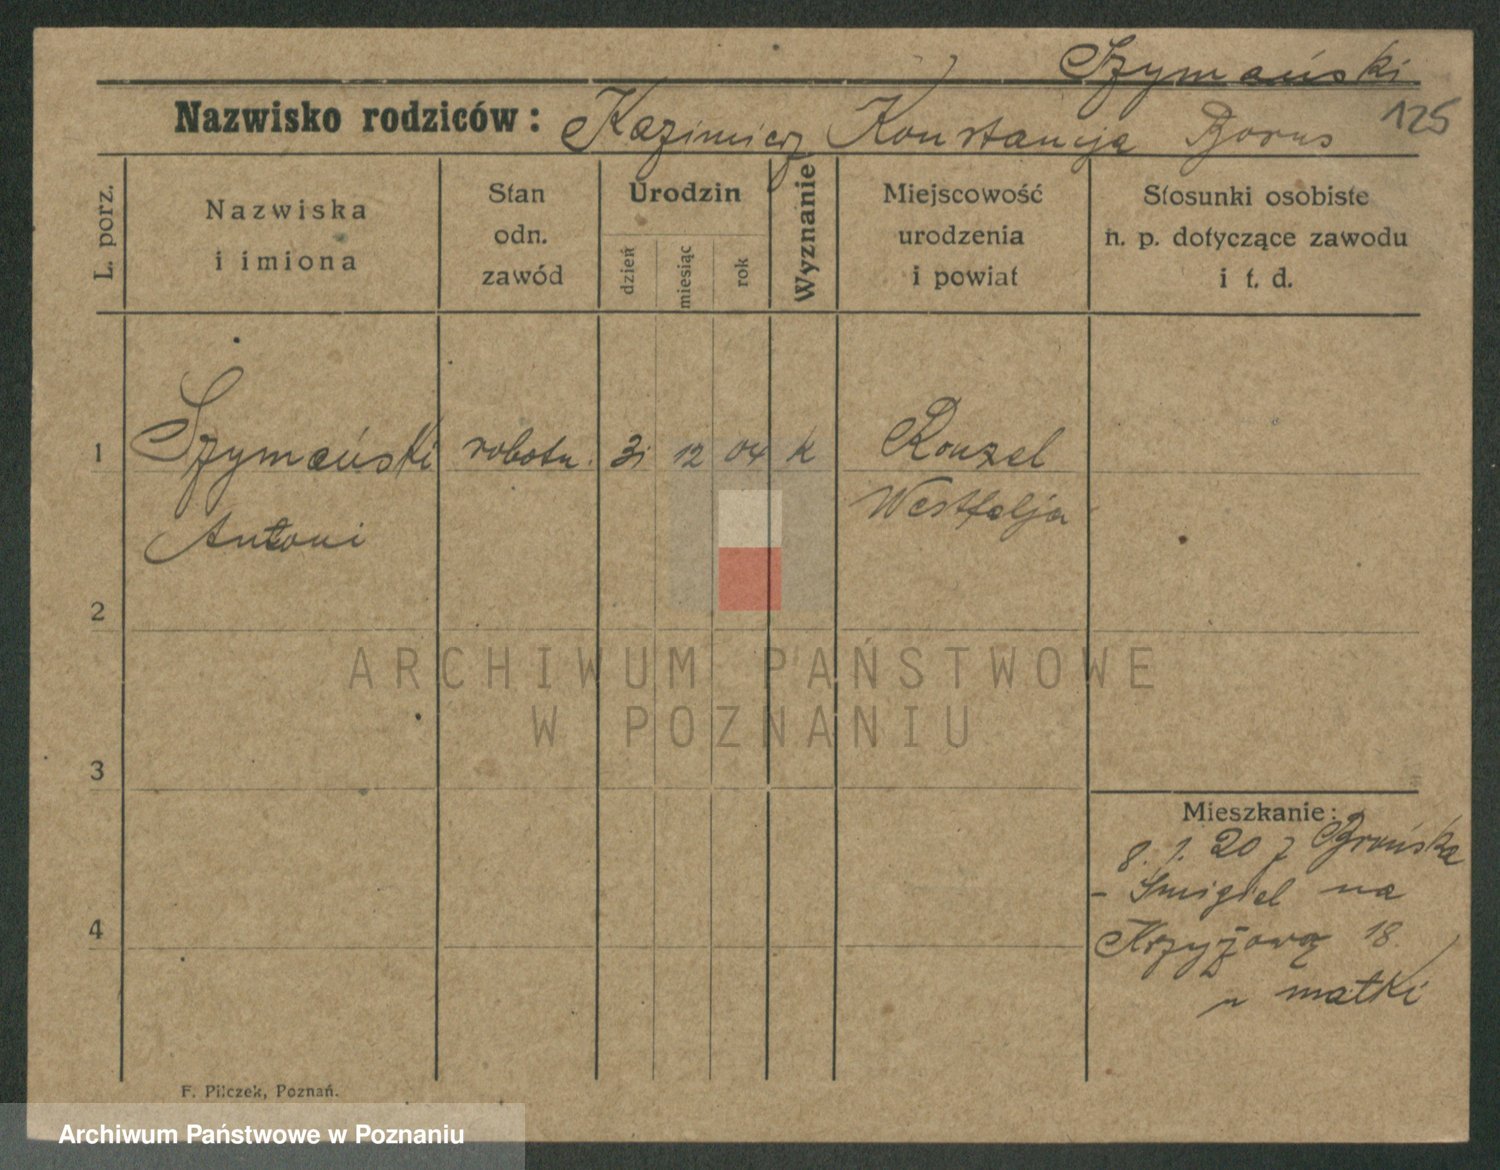 Szymański
Nazwisko rodziców: Kazimierz Konstancja Borus 125
L. porz.
Nazwiska
i imiona
Stan
odn.
zawód
Urodzin
dzień
miesiąc
rok
Wyznanie
Miejscowość
urodzenia
i powiat
Stosunki osobiste
n. p. dotyczące zawodu
i t. d.
1 Szymański robotn. 31 12 04 k Rouxel
Antoni Westfalja
2
ARCHIWUM PAŃSTWOWE
W POZNANIU
3
Mieszkanie:
8. 1. 20 z Brońska
- Śmigiel na
4 Krzyżową 18
u matki
F. Pilczek, Poznań.
Archiwum Państwowe w Poznaniu